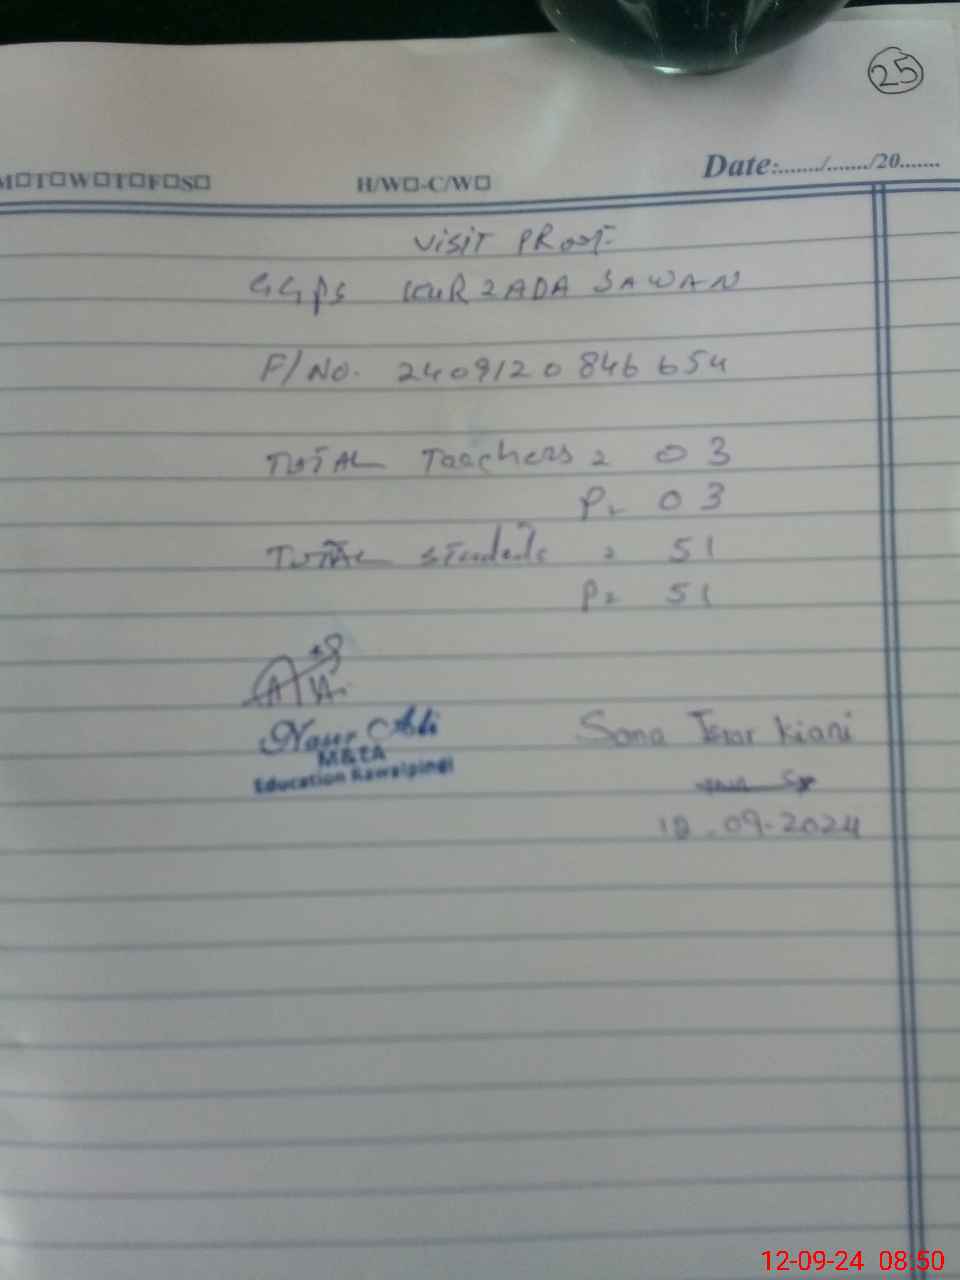 25
M☐T☐W☐T☐F☐S☐ H/W☐-C/W☐ Date:......./......./20.......
Visit Proof
GGPS KURZADA SAWAN
F/No. 240912 0 846 654
TOTAL Teachers = 03
P= 03
TOTAL Students = 51
P= 51
Ali
M&EA
Education Rawalpindi
Sana Israr Kiani
12-09-2024
12-09-24 08:50